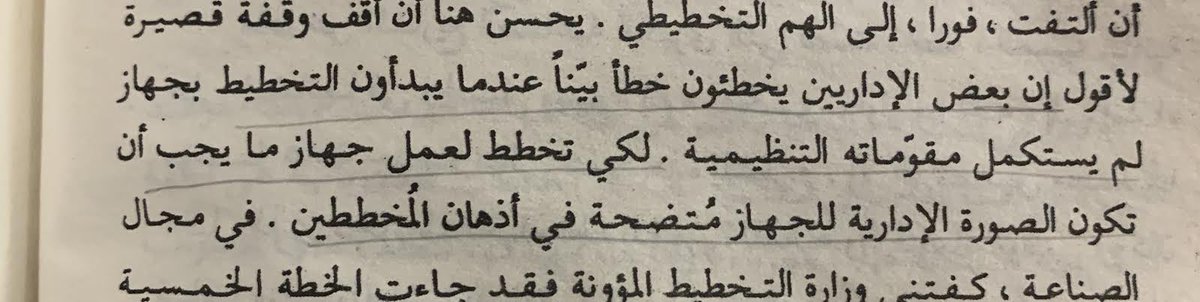 أن ألتفت ، فورا ، إلى الهم التخطيطي . يحسن هنا أن أقف وقفة قصيرة
لأقول إن بعض الإداريين يخطئون خطأ بيّناً عندما يبدأون التخطيط بجهاز
لم يستكمل مقوّماته التنظيمية . لكي تخطط لعمل جهاز ما يجب أن
تكون الصورة الإدارية للجهاز مُتضحة في أذهان المُخططين . في مجال
الصناعة ، كفتني وزارة التخطيط المؤونة فقد جاءت الخطة الخمسية